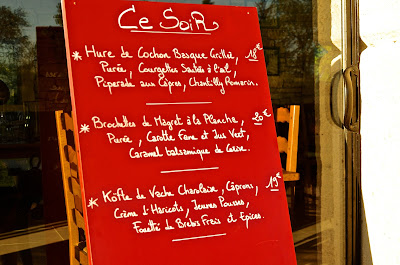 Ce Soir
* Hure de Cochon Basque Grillée, 18€
Purée, Courgettes Sautés à l'ail,
Piperade aux Câpres, Chantilly Romarin.
* Brochettes de Magret à la Plancha, 20€
Purée, Carotte Fane et Jus Vert,
Caramel balsamique de Cerise.
* Köfte de Vache Charolaise, Câprons, 19€
Crème d'Haricots, Jeunes Pousses,
Fouetté de Brebis Frais et Epices.